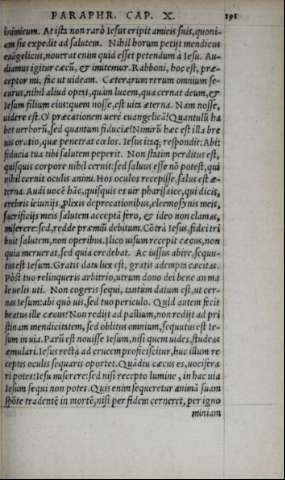 PARAPHR. CAP. X. 191
inimicum. At ista non rarò Iesus eripit amicis suis, quoni-
am sic expedit ad salutem. Nihil horum petijt mendicus
euãgelicus, nouerat enim quid esset petendum à Iesu. Au-
diamus igitur cæcũ, & imitemur. Rabboni, hoc est, præ-
ceptor mi, fac ut uideam. Cæterarum rerum omnium se-
curus, nihil aliud optat, quàm lucem, qua cernat deum, &
Iesum filium eius: quem nosse, est uita æterna. Nam nosse,
uidere est. O præcationem uerè euangelicã! Quantulũ ha
bet uerborũ, sed quantum fiduciæ! Nimirũ hæc est illa bre
uis oratio, quæ penetrat cœlos. Iesus itaq; respondit: Abi:
fiducia tua tibi salutem peperit. Non statim perditus est,
quisquis corpore nihil cernit: sed saluus esse nõ potest, qui
nihil cernit oculis animi. Hos oculos recepisse, salus est æ-
terna. Audi uocẽ hãc, quisquis es uir pharisaice, qui dicis,
crebris ieiunijs, plexis deprecationibus, eleemosynis meis,
sacrificijs meis salutem acceptã fero, & ideo non clamas,
miserere: sed, redde præmiũ debitum. Cõtrà Iesus, fidei tri
buit salutem, non operibus. Ilico uisum recepit cæcus, non
quia meruerat, sed quia credebat. Ac iussus abire, sequu-
tus est Iesum. Gratis data lux est, gratis adempta cæcitas.
Pòst tuo relinqueris arbitrio, utrum dono dei bene an ma
le uelis uti. Non cogeris sequi, tantum datum est, ut cer-
nas Iesum: abi quò uis, sed tuo periculo. Quid autem fecit
beatus ille cæcus? Non redijt ad pallium, non redijt ad pri
stinam mendicitatem, sed oblitus omnium, sequutus est Ie-
sum in uia. Parũ est nouisse Iesum, nisi quem uides, studeas
æmulari. Iesus rectà ad crucem proficiscitur, huc illum re
ceptis oculis sequaris oportet. Quãdiu cæcus es, uociferа
ri potes: Iesu miserere: sed nisi recepto lumine, in hac uia
Iesum sequi non potes. Quis enim sequeretur animã suam
spõte tradentẽ in mortẽ, nisi per fidem cerneret, per igno
miniam